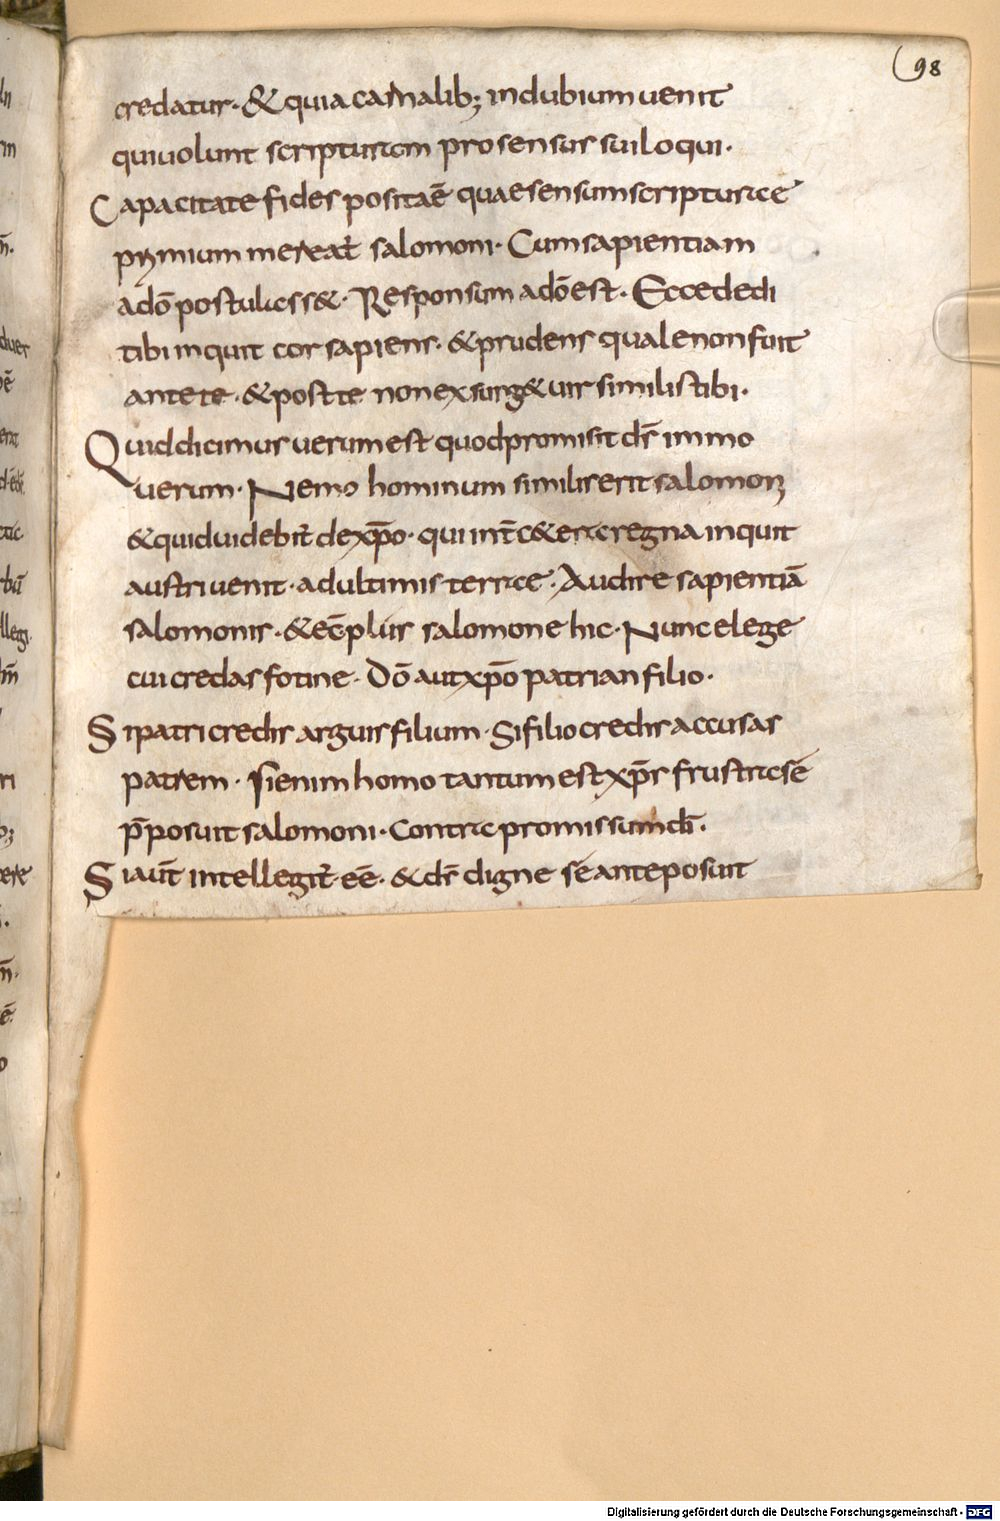 98
credatur· & quia carnalib; indubium uenit
qui uolunt scripturam pro sensus sui loqui·
Capacitate fides posita ē quae sensum scripturae
premium mereat̄ salomoni· Cum sapientiam
a dō postulass&· Responsum a dō est· Ecce dedi
tibi inquit cor sapiens· & prudens quale non fuit
ante te· & post te non exsurg& uir similis tibi·
Quid dicimus uerum est quod promisit d̄s immo
uerum· Nemo hominum similis erit salomon
& quid uidebit̄ de xp̄o· qui
austri uenit· ad ultimis terrae· Audire sapientiā
salomonis· & ecc̄ plus salomone hic· Nunc elege
cui credas fotine· Dō aut xp̄o patri an filio·
Si patri credis arguis filium· Si filio credis accusas
patrem· Si enim homo tantum est xp̄s frustra sē
p̄posuit salomoni· Contra promissum d̄i·
Si aut̄ intellegit̄ eē· & d̄s digne sē anteposuit
Digitalisierung gefördert durch die Deutsche Forschungsgemeinschaft - DFG